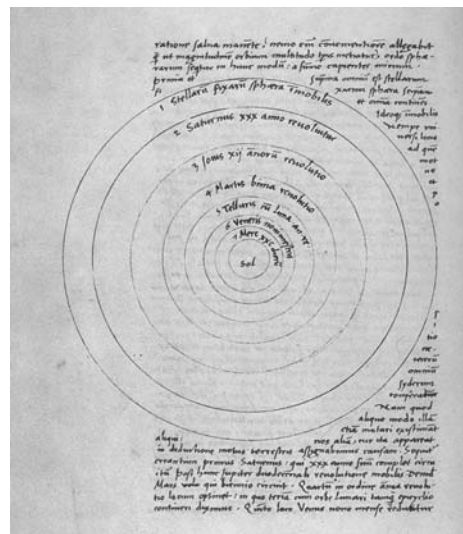 ratione salua manēte, nemo em̄ cōuenientiorē allegabit
q̄ ut magnitudinē orbium multitudo tp̄is metiatur, ordo sphæ-
rarum sequitur in hunc modū: a sūmo capientes initium.
prima et suprema omniū est stellarum
fixarum sphæra seipsam
et omnia continēs
Ideoqȝ īmobilis
nempe uni-
uersi locus
ad quē
mot
1 Stellarū fixarū sphæra īmobilis
2 Saturnus xxx anno reuoluitur
3 Iouis xij annorū reuolutio
4 Martis bima reuolutio
5 Telluris cū luna an. re.
6 Veneris nonimestris
7 Merc xxc dierū
Sol
omniū
syderum
Nam quod
aliquo modo illā
etiā mutari existimāt
aliqui: nos aliā, cur ita appareat
in deductione motus terrestris assignabimus causam. Sequit
errantium primus Saturnus: qui xxx anno suū complet circu
itū. post hunc Iupiter duodecennali reuolutione mobilis. Deinde
Mars uolu qui biennio circuit. Quartū in ordine annua reuolu
tio locum optinet: in quo terrā cum orbe lunari tanqȝ epicyclo
contineri diximus. Quīto loco Venus nono mense reducitur